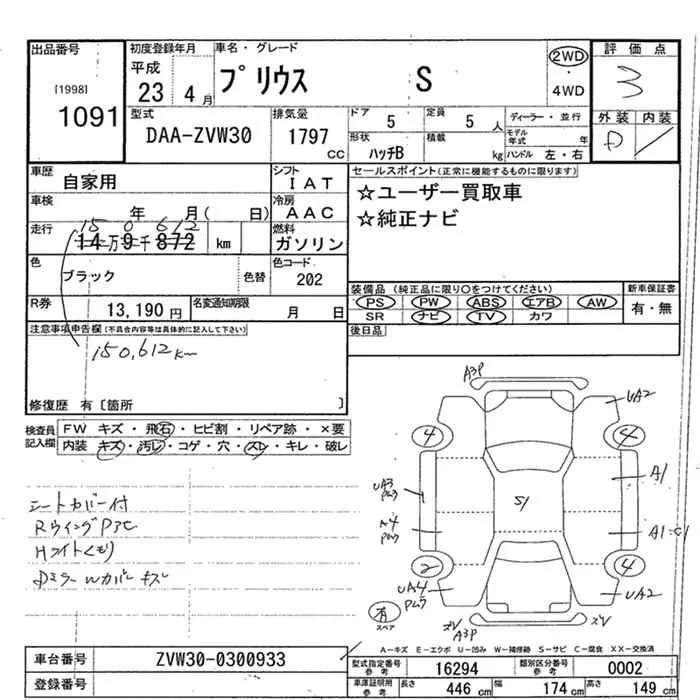 出品番号
[1998]
1091
初度登録年月
平成
23 4月
車名・グレード
プリウス S
2WD
・
4WD
評価点
3
外装 内装
D
型式
DAA-ZVW30
排気量
1797
CC
ドア 5
定員 5 人
形状 ハッチB
積載 kg
ディーラー・並行
モデル年式 年
ハンドル 左・右
車歴
自家用
シフト
IAT
車検
年 月( 日)
冷房
AAC
走行
15 0 612
14万9千872 km
燃料
ガソリン
色
ブラック
色替
色コード
202
R券
13,190円
名変通知期限
月 日
注意事項申告欄(不具合内容等は具体的に記入して下さい)
150,612km
修復歴 有〔箇所 〕
セールスポイント(正常に機能するものに限ります)
☆ユーザー買取車
☆純正ナビ
装備品(純正品に限り○をつけてください)
PS PW ABS エアB AW
SR ナビ TV カワ
新車保証書
有・無
後日品
検査員記入欄
FW キズ・飛石・ヒビ割・リペア跡・×要
内装 キズ・汚レ・コゲ・穴・スレ・キレ・破レ
シートカバー付
RウィングP3C
Hライトくもり
Dミラーwカバーキズ
A3P
UA2
4
4
A1
S1
UA3
4
2
4
UA4
UA2
A3P
有
スペア
A—キズ E—エクボ U—凹み W—補修跡 S—サビ C—腐食 XX—交換済
車台番号
ZVW30-0300933
登録番号
型式指定番号
参考
16294
類別区分番号
参考
0002
車庫証明用
参考
長さ 446 cm
幅 174 cm
高さ 149 cm